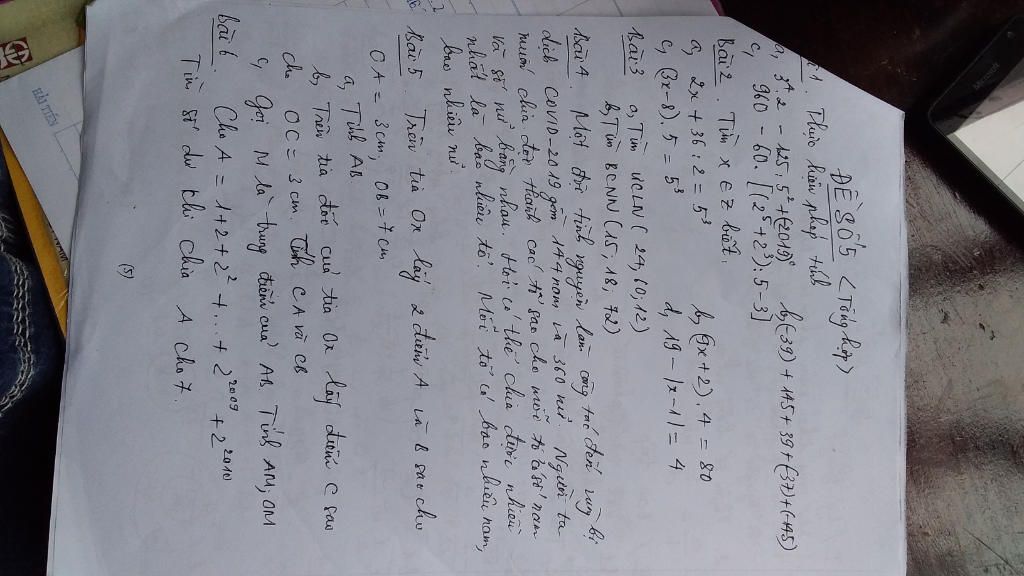 ĐỀ SỐ 5 < Tổng hợp >
Bài 1. Thực hiện phép tính
a, 3⁴.2 - 125:5² + (2019)⁰ b, (-39) + 145 + 39 + (-37) + (-145)
c, 910 - 60.[(2⁵+2³):5-3]
Bài 2. Tìm x ∈ Z biết.
a, 2x + 36:2 = 5³ b, (9x+2).4 = 80
c, (3x-8).5 = 5³ d, 19 - |x-1| = 4
Bài 3 a, Tìm ƯCLN (24, 60, 12)
b, Tìm BCNN (15, 18, 72)
Bài 4. Một đội tình nguyện làm công tác đến vùng bị
dịch COVID-2019 gồm 144 nam và 360 nữ. Người ta
muốn chia đội thành các tổ sao cho mỗi tổ số nam
và số nữ bằng nhau. Hỏi có thể chia được nhiều
nhất là bao nhiêu tổ. Mỗi tổ có bao nhiêu nam,
bao nhiêu nữ.
Bài 5. Trên tia Ox lấy 2 điểm A và B sao cho
OA = 3cm, OB = 7cm
a, Tính AB
b, Trên tia đối của tia Ox lấy điểm C sao
cho OC = 3cm. Tính CA và CB
c, Gọi M là trung điểm của AB Tính AM, OM
Bài 6. Cho A = 1+2+2²+...+2²⁰⁰⁹ + 2²⁰¹⁰
Tìm số dư khi chia A cho 7.
(5)
HẢI TIẾN
Microsoft